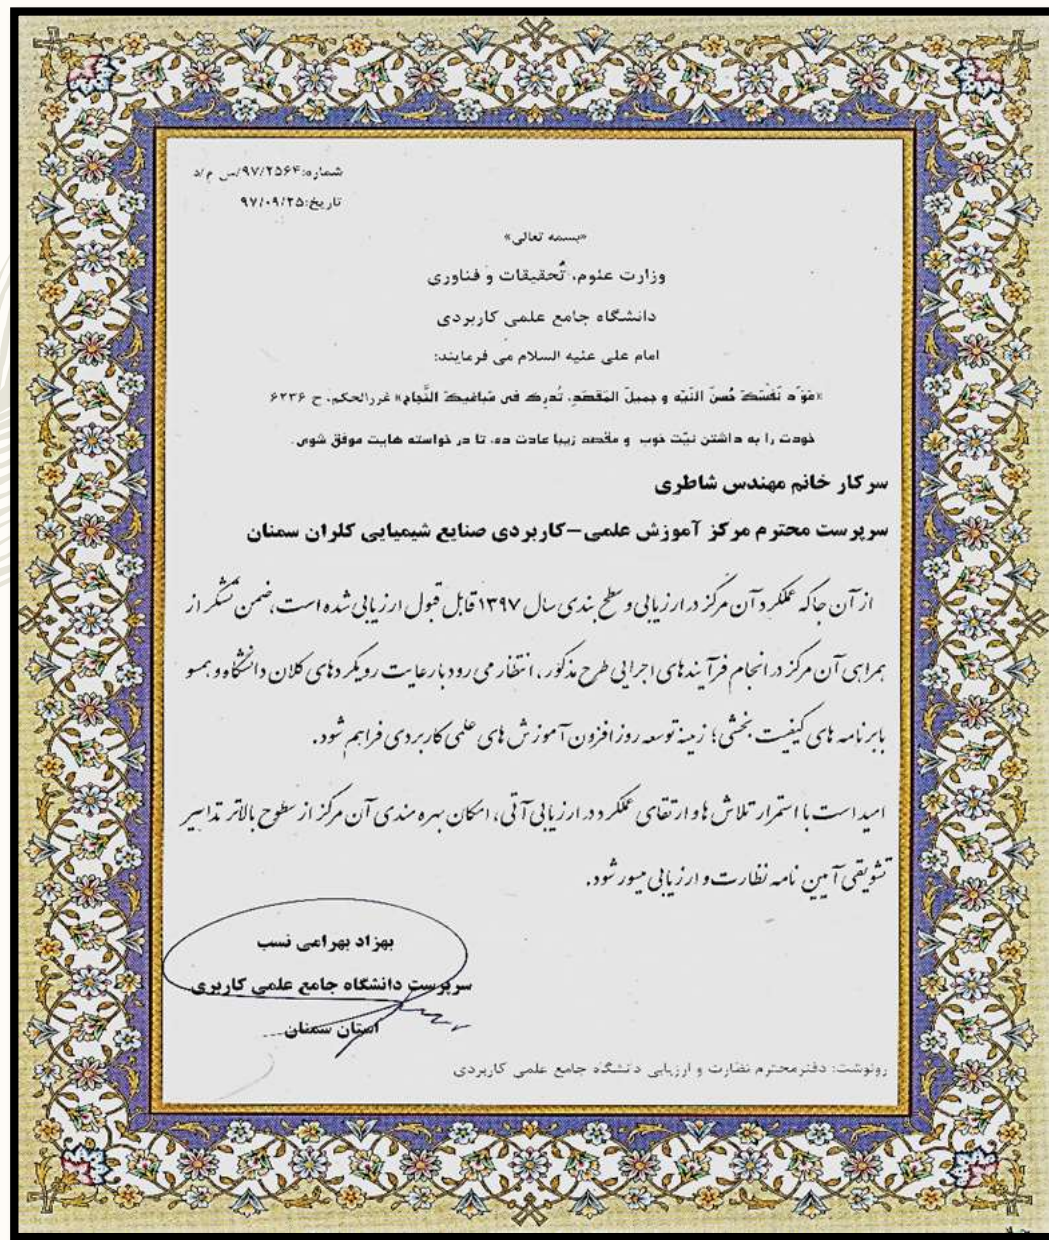 شماره:۹۷/۲۵۶۴/س م/د
تاریخ:۹۷/۰۹/۲۵
«بسمه تعالی»
وزارت علوم، تحقیقات و فناوری
دانشگاه جامع علمی کاربردی
امام علی علیه السلام می فرمایند:
«عَوِّد نَفْسَکَ حُسنَ النِّیَّه و جمیلَ المَقصَدِ، تُدرِک فی مَباغیکَ النَّجاحِ» غررالحکم، ح ۶۲۳۶
خودت را به داشتن نیّت خوب و مقصد زیبا عادت ده، تا در خواسته هایت موفق شوی.
سرکار خانم مهندس شاطری
سرپرست محترم مرکز آموزش علمی-کاربردی صنایع شیمیایی کلران سمنان
از آن جا که عملکرد آن مرکز در ارزیابی و سطح بندی سال ۱۳۹۷ قابل قبول ارزیابی شده است، ضمن تشکر از
همراهی آن مرکز در انجام فرآیندهای اجرایی طرح مذکور، انتظار می رود با رعایت رویکردهای کلان دانشگاه و همسو
با برنامه های کیفیت بخشی؛ زمینه توسعه روز افزون آموزش های علمی کاربردی فراهم شود.
امید است با استمرار تلاش ها و ارتقای عملکرد در ارزیابی آتی، امکان بهره مندی آن مرکز از سطوح بالاتر تدابیر
تشویقی آیین نامه نظارت و ارزیابی میسور شود.
بهزاد بهرامی نسب
سرپرست دانشگاه جامع علمی کاربری
استان سمنان
رونوشت: دفتر محترم نظارت و ارزیابی دانشگاه جامع علمی کاربردی